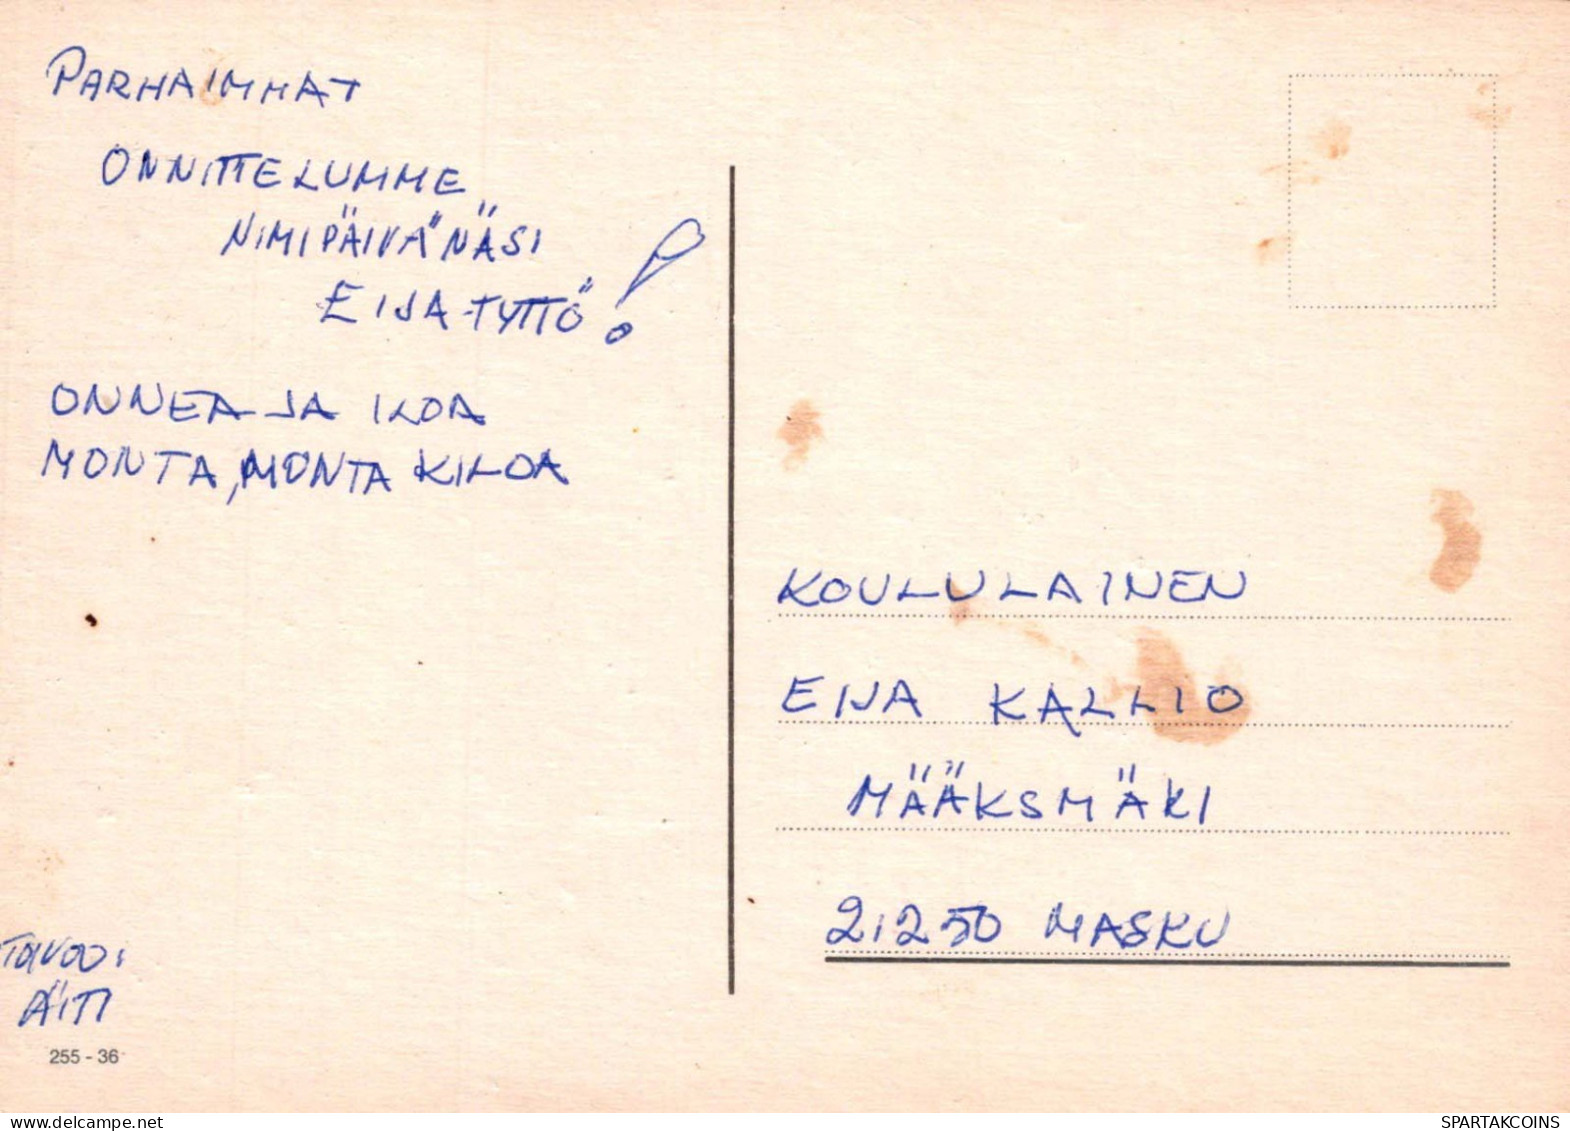 PARHAIMMAT
ONNITTELUMME
NIMIPÄIVÄNÄSI
EIJA-TYTTÖ!
ONNEA JA ILOA
MONTA, MONTA KILOA
TOIVOO:
ÄITI
255 - 36
KOULULAINEN
EIJA KALLIO
MÄÄKSMÄKI
21250 MASKU
www.delcampe.net
SPARTAKCOINS